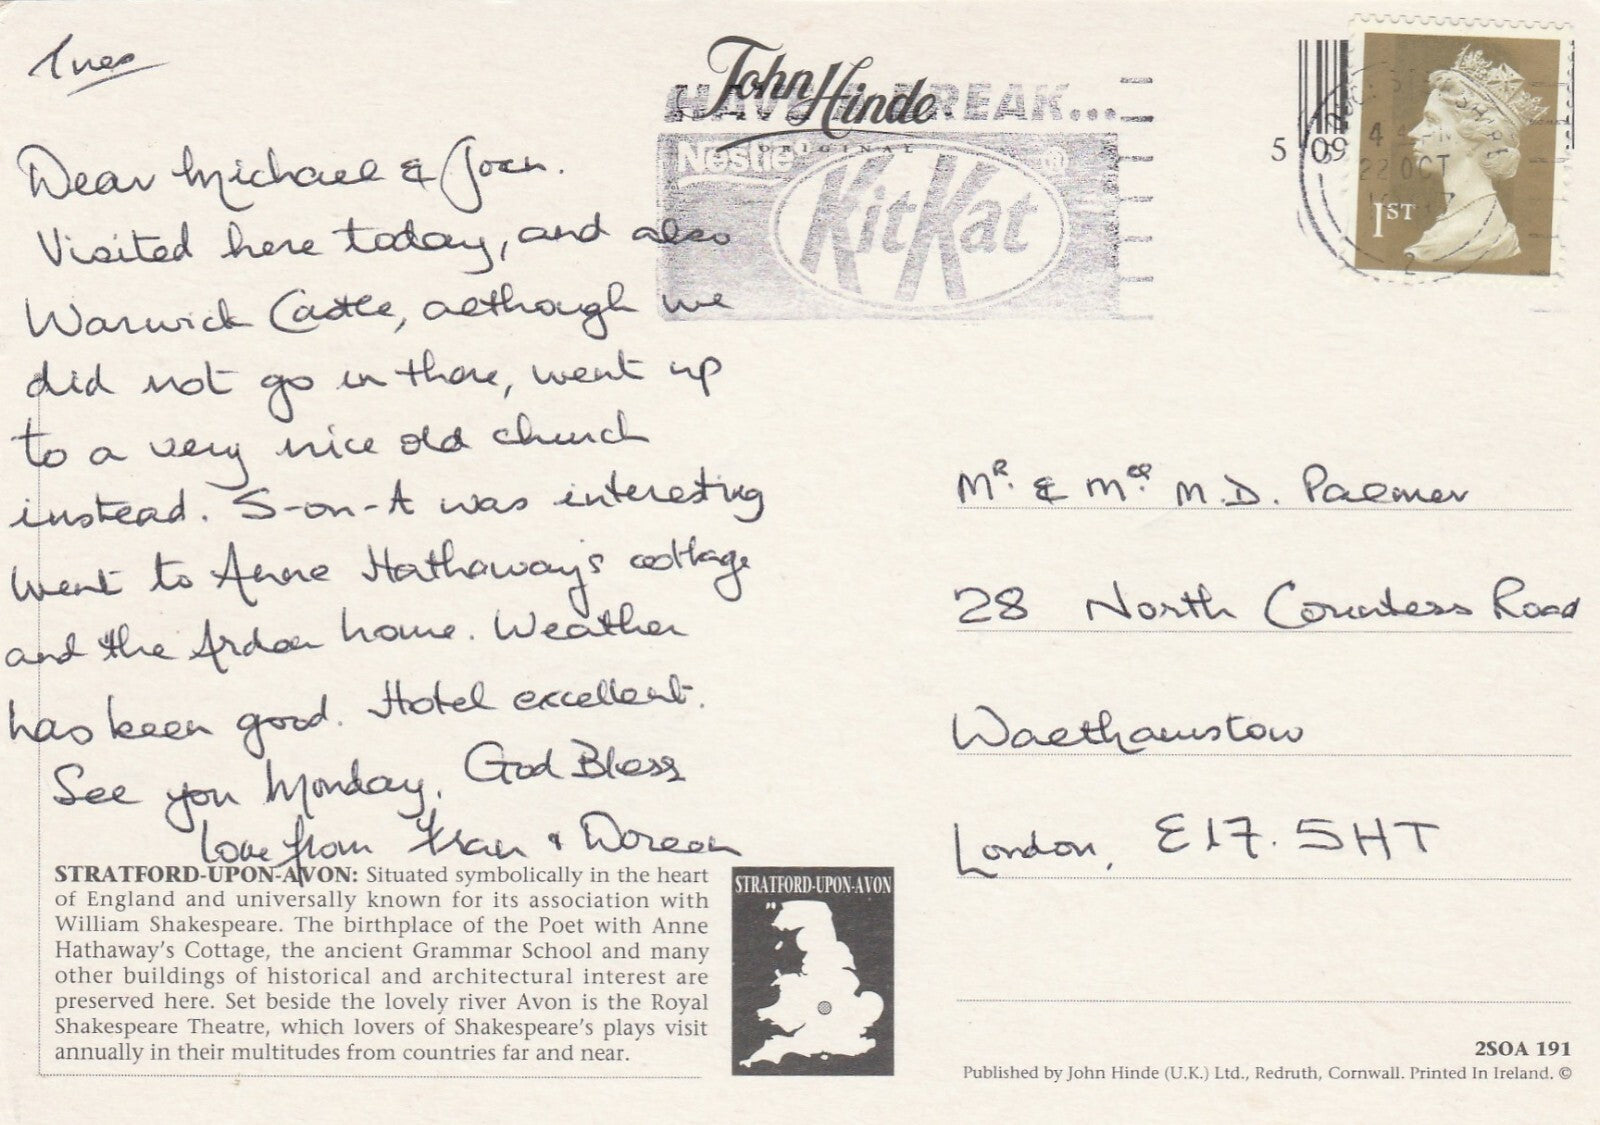 Tues
Dear Michael & Joan.
Visited here today, and also
Warwick Castle, although we
did not go in there, went up
to a very nice old church
instead. S-on-A was interesting
Went to Anne Hathaway's cottage
and the Arden home. Weather
has been good. Hotel excellent.
See you Monday. God Bless
Love from Fran & Doreen
STRATFORD-UPON-AVON: Situated symbolically in the heart
of England and universally known for its association with
William Shakespeare. The birthplace of the Poet with Anne
Hathaway's Cottage, the ancient Grammar School and many
other buildings of historical and architectural interest are
preserved here. Set beside the lovely river Avon is the Royal
Shakespeare Theatre, which lovers of Shakespeare's plays visit
annually in their multitudes from countries far and near.
STRATFORD-UPON-AVON
John Hinde
ORIGINAL
HAVE A BREAK...
Nestlé
KitKat
5 09
1ST
22 OCT
2
Mr. & Mrs. M.D. Palmer
28 North Countess Road
Walthamstow
London, E17. 5HT
2SOA 191
Published by John Hinde (U.K.) Ltd., Redruth, Cornwall. Printed In Ireland. ©